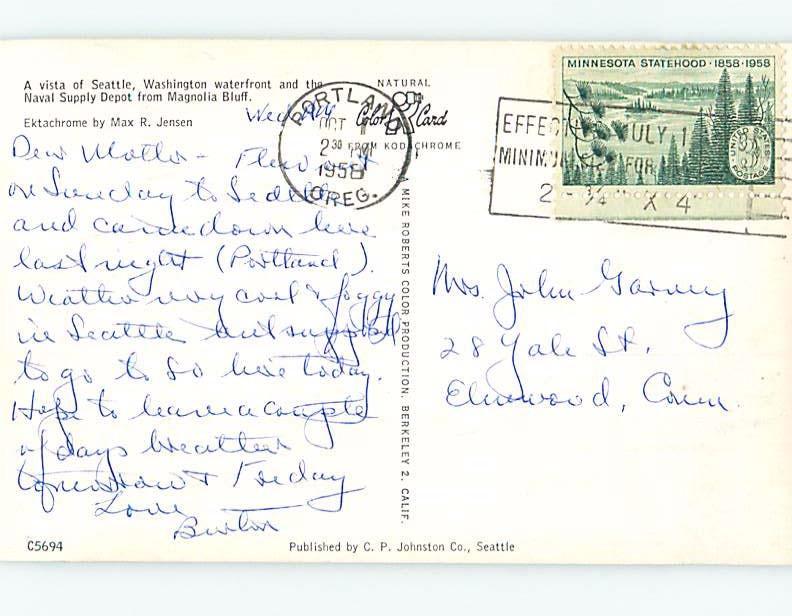 A vista of Seattle, Washington waterfront and the
Naval Supply Depot from Magnolia Bluff.
Ektachrome by Max R. Jensen
NATURAL
Color Card
FROM KODACHROME
PORTLAND
OCT 1
2 30 PM
1958
OREG.
MINNESOTA STATEHOOD · 1858 · 1958
UNITED STATES POSTAGE
3¢
EFFECTIVE JULY 1
MINIMUM FOR
2 3/4 X 4
Wed. PM
Dear Mother – Flew out
on Sunday to Seattle
and came down here
last night (Portland).
Weather very cool & foggy
in Seattle but supposed
to go to 80 here today.
Hope to have a couple
of days weather
tomorrow & Friday
Love
Burton
MIKE ROBERTS COLOR PRODUCTION, BERKELEY 2, CALIF.
Mrs. John Garvey
28 Yale St.
Elmwood, Conn.
C5694
Published by C. P. Johnston Co., Seattle